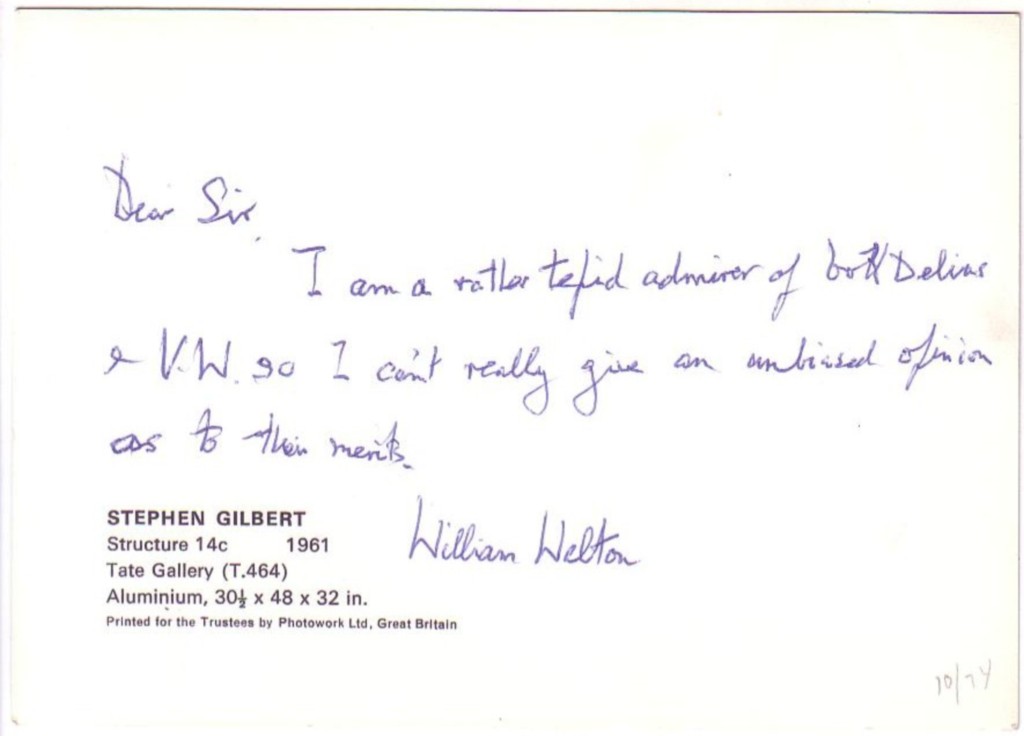 Dear Sir,
I am a rather tepid admirer of both Delius
& V.W. so I can't really give an unbiased opinion
as to their merits.
William Walton
STEPHEN GILBERT
Structure 14c 1961
Tate Gallery (T.464)
Aluminium, 30½ x 48 x 32 in.
Printed for the Trustees by Photowork Ltd, Great Britain
10/74